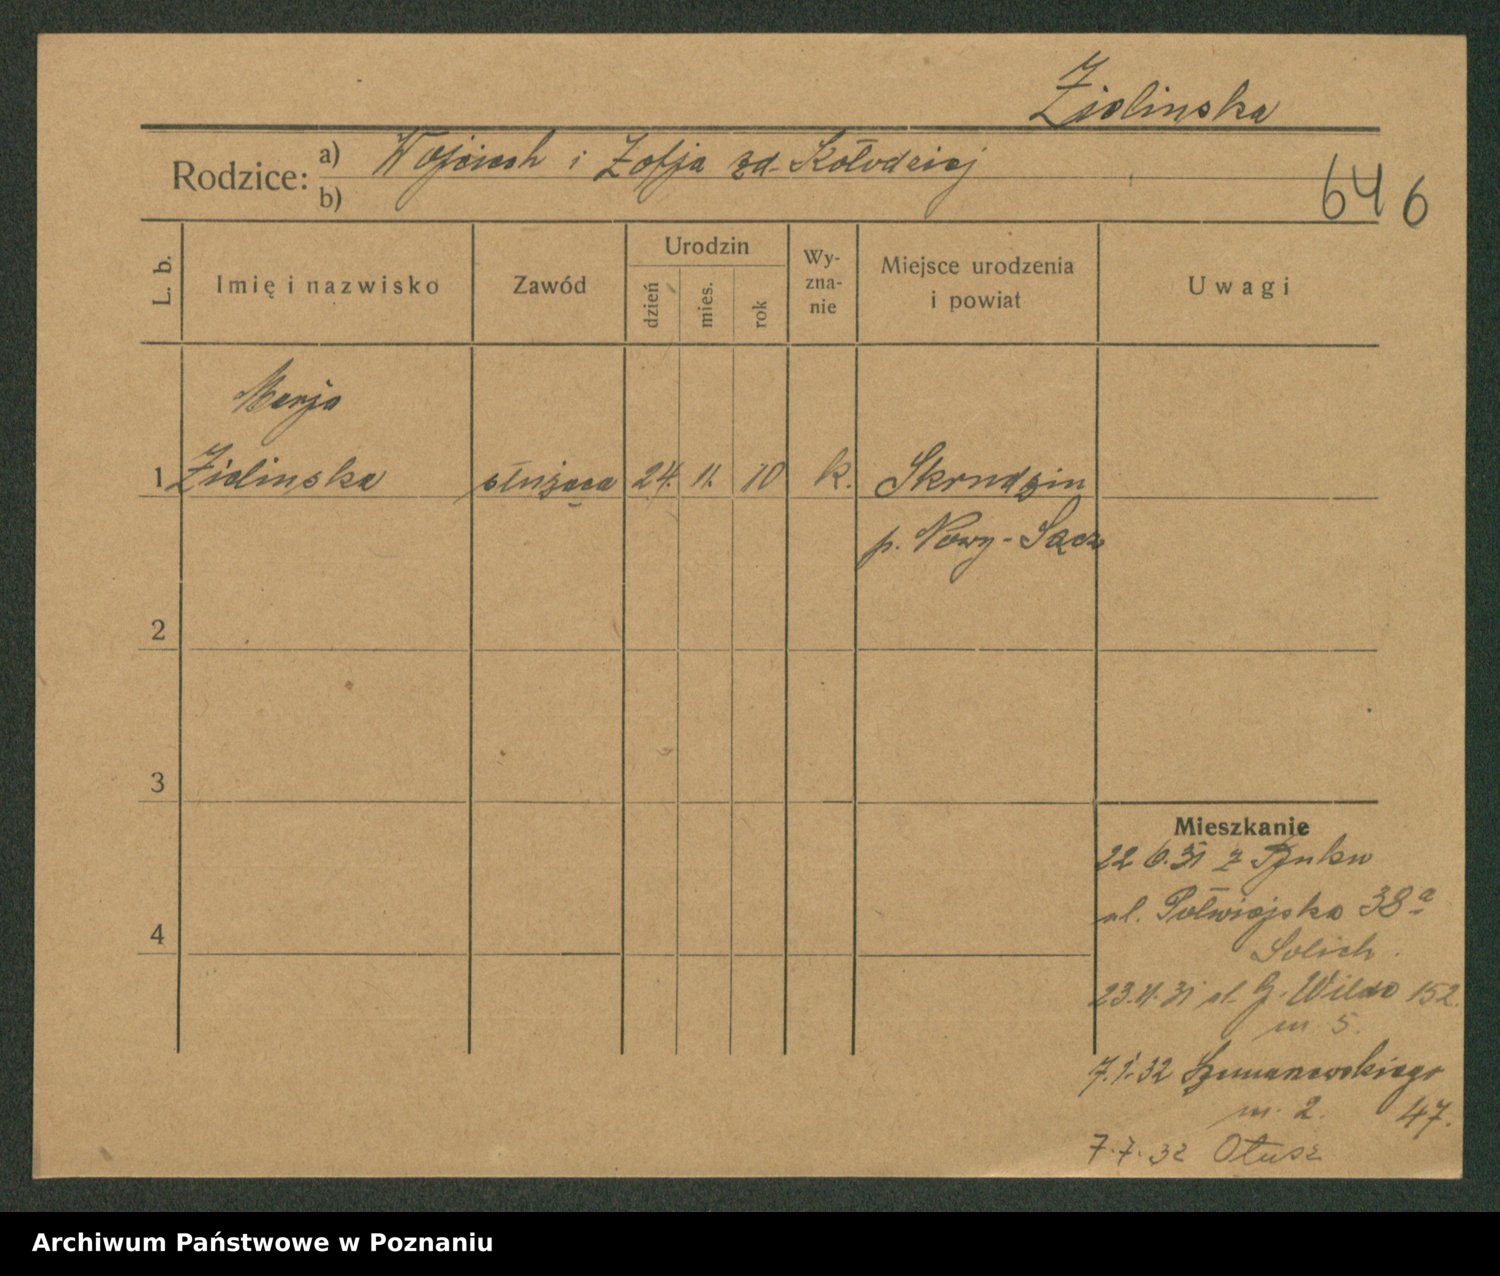 Zielinska
Rodzice:
a) Wojciech i Zofja zd. Kołodziej
b)
646
L. b.
Imię i nazwisko
Zawód
Urodzin
dzień
mies.
rok
Wy-
zna-
nie
Miejsce urodzenia
i powiat
Uwagi
Marja
1 Zielinska służąca 24. 11. 10 k. Skrudzin
p. Nowy-Sącz
2
3
4
Mieszkanie
22 6. 31 z Rynku
ul. Półwiejska 38a
Solich.
23.11.31 ul. G. Wilda 152.
m. 5.
7.1.32 Szumanowskiego
m. 2. 47.
7.7.32 Otusz
Archiwum Państwowe w Poznaniu